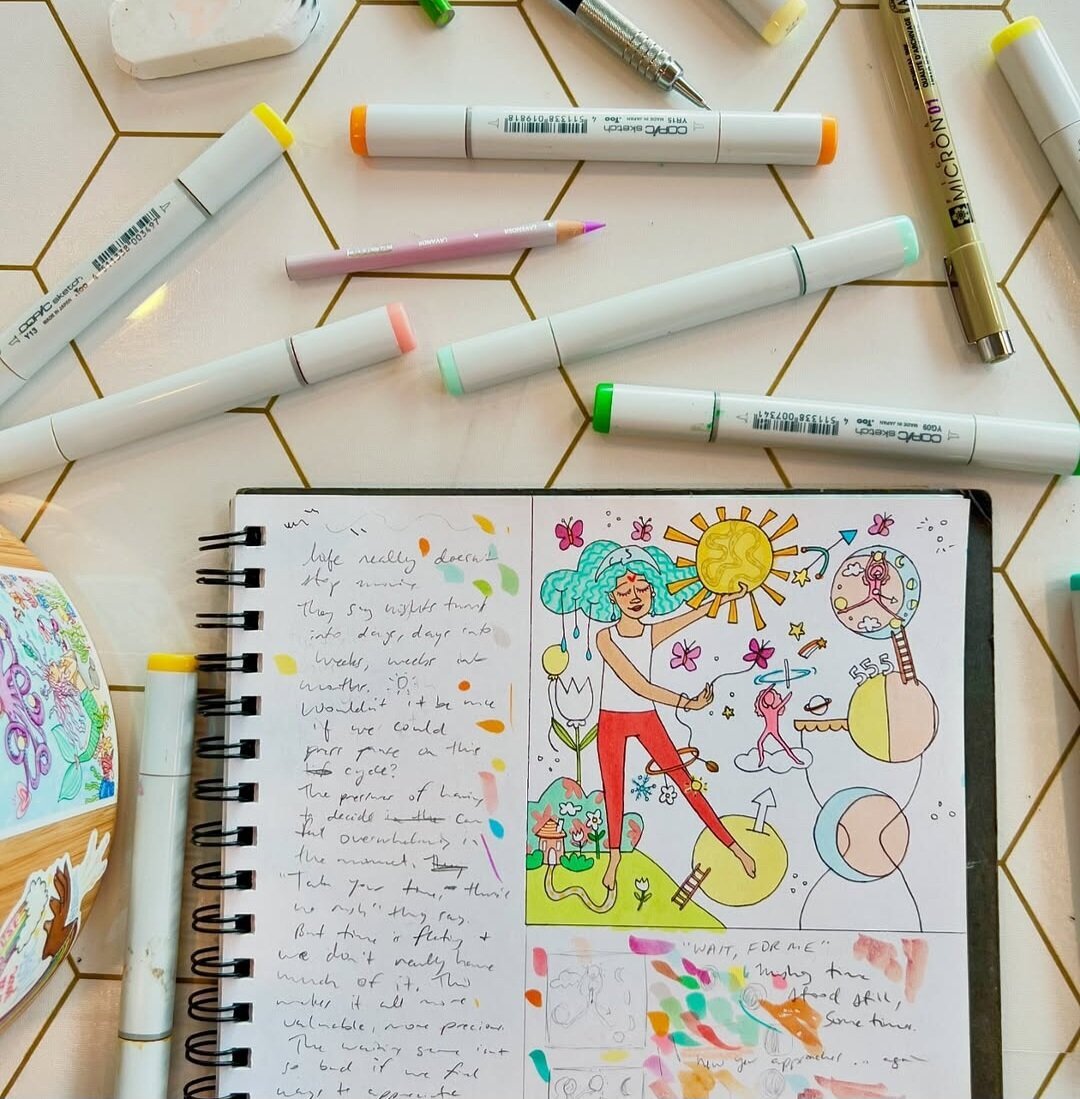 COPIC sketch
YR15 MADE IN JAPAN
.Too
4 511338 019818
MICRON 01
COPIC sketch
Y13 MADE IN JAPAN .Too
4 511338 003497
LAVENDER
COPIC sketch
YG09 MADE IN JAPAN
.Too
4 511338 007341
life really doesn't
stop moving
They say nights turn
into days, days into
weeks, weeks into
months.
Wouldn't it be nice
if we could
press pause on this
cycle?
The pressure of having
to decide can
feel overwhelming in
the moment.
"Take your time, there's
no rush" they say.
But time is fleeting +
we don't really have
much of it. This
makes it all more
valuable, more precious.
The waiting game isn't
so bad if we find
ways to appreciate
555
"WAIT, FOR ME"
time
stood still,
Some times.
New year approaches... again